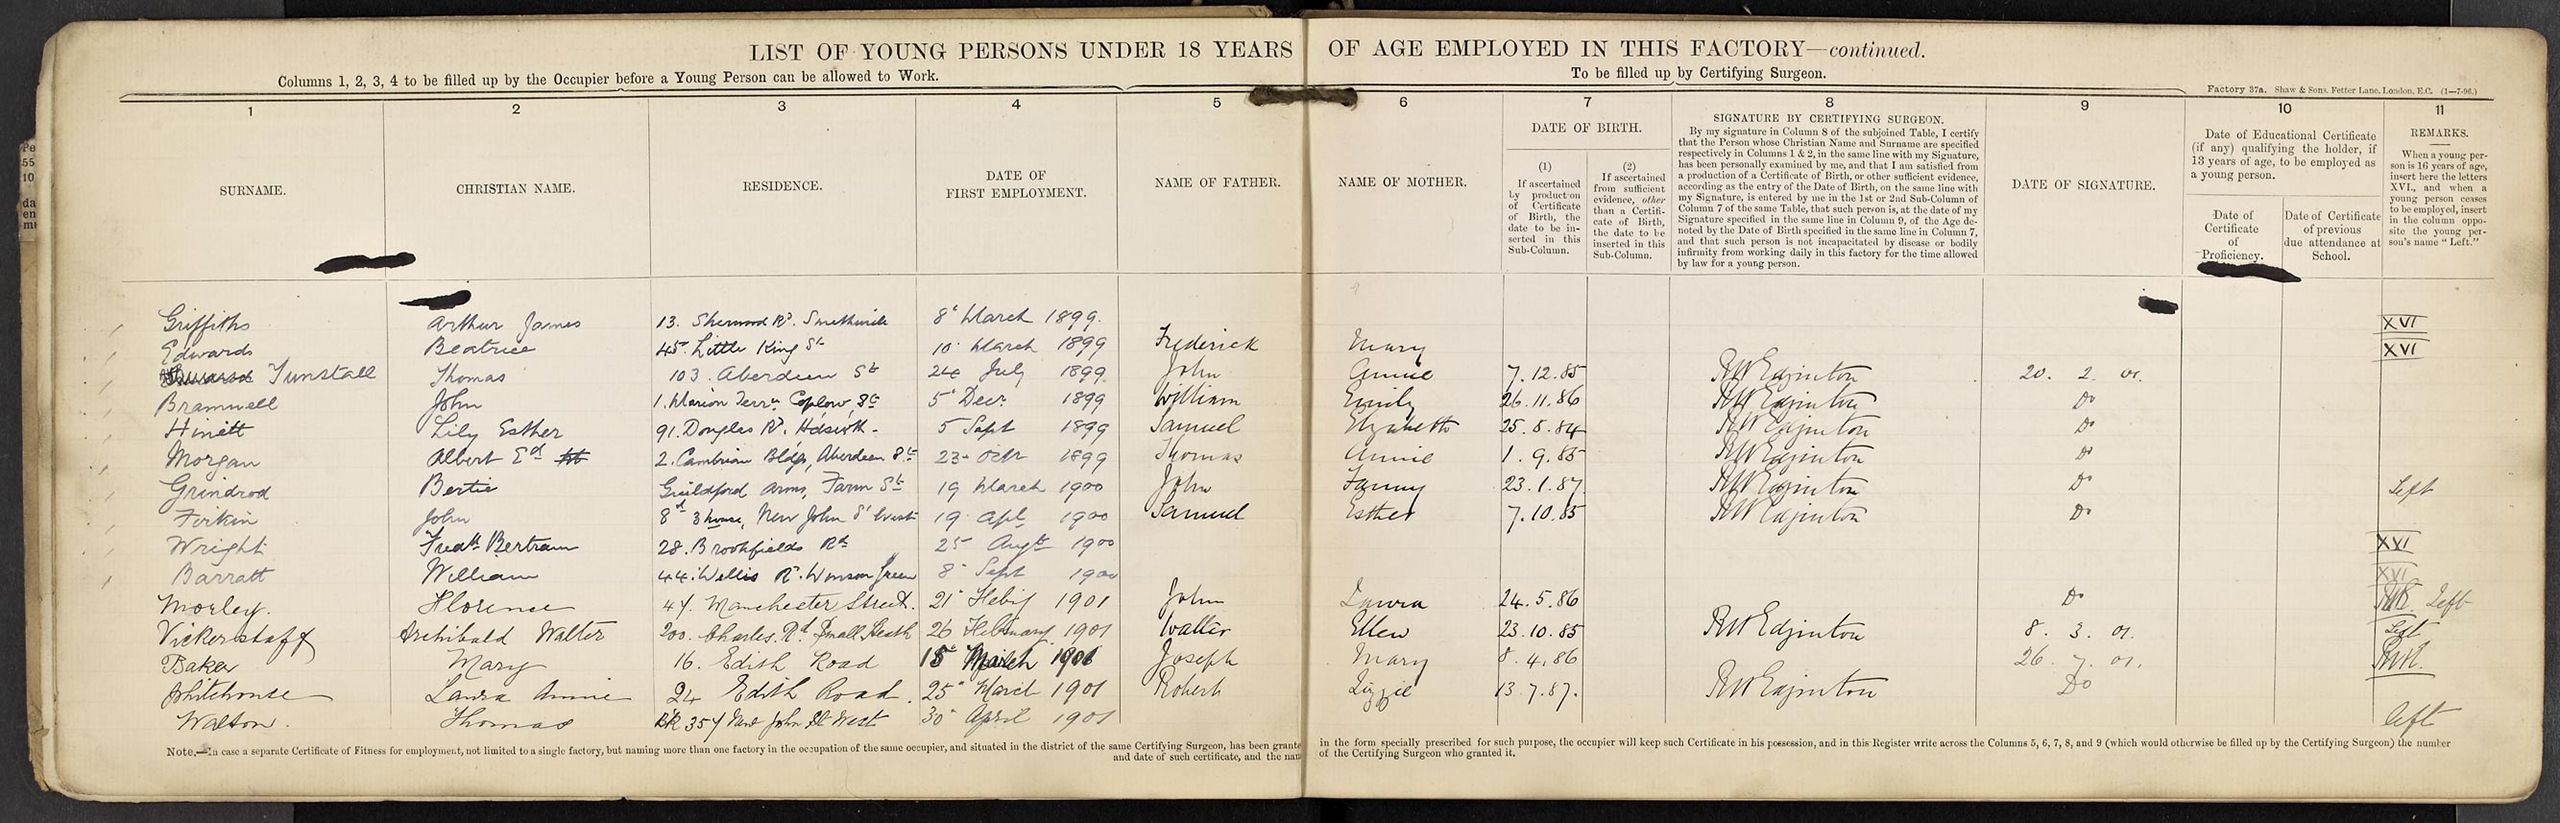 LIST OF YOUNG PERSONS UNDER 18 YEARS OF AGE EMPLOYED IN THIS FACTORY—continued.
Columns 1, 2, 3, 4 to be filled up by the Occupier before a Young Person can be allowed to Work.
To be filled up by Certifying Surgeon.
Factory 37a. Shaw & Sons, Fetter Lane, London, E.C. (1—7-96.)
1 2 3 4 5 6 7 8 9 10 11
SURNAME.
CHRISTIAN NAME.
RESIDENCE.
DATE OF
FIRST EMPLOYMENT.
NAME OF FATHER.
NAME OF MOTHER.
DATE OF BIRTH.
(1)
If ascertained
by production
of Certificate
of Birth, the
date to be in-
serted in this
Sub-Column.
(2)
If ascertained
from sufficient
evidence, other
than a Certifi-
cate of Birth,
the date to be
inserted in this
Sub-Column.
SIGNATURE BY CERTIFYING SURGEON.
By my signature in Column 8 of the subjoined Table, I certify
that the Person whose Christian Name and Surname are specified
respectively in Columns 1 & 2, in the same line with my Signature,
has been personally examined by me, and that I am satisfied from
a production of a Certificate of Birth, or other sufficient evidence,
according as the entry of the Date of Birth, on the same line with
my Signature, is entered by me in the 1st or 2nd Sub-Column of
Column 7 of the same Table, that such person is, at the date of my
Signature specified in the same line in Column 9, of the Age de-
noted by the Date of Birth specified in the same line in Column 7,
and that such person is not incapacitated by disease or bodily
infirmity from working daily in this factory for the time allowed
by law for a young person.
DATE OF SIGNATURE.
Date of Educational Certificate
(if any) qualifying the holder, if
13 years of age, to be employed as
a young person.
Date of
Certificate
of
Proficiency.
Date of Certificate
of previous
due attendance at
School.
REMARKS.
When a young per-
son is 16 years of age,
insert here the letters
XVI., and when a
young person ceases
to be employed, insert
in the column oppo-
site the young per-
son's name "Left."
Griffiths Arthur James 13. Sherwood Rd. Smethwick 8' March 1899. XVI
Edwards Beatrice 45. Little King St 10 March 1899 Frederick Mary XVI
Tunstall Thomas 103. Aberdeen St 24 July 1899 John Annie 7.12.85 RW Edginton 20. 2. 01.
Bramwell John 1. Marion Terr. Coplow St 5 Decr. 1899 William Emily 26.11.86 RW Edginton Do
Hinett Lily Esther 91. Douglas Rd. Hdswth. 5 Sept 1899 Samuel Elizabeth 25.5.84 RW Edginton Do
Morgan Albert Ed 2. Cambrian Bldgs, Aberdeen St 23 Octr 1899 Thomas Annie 1.9.85 RW Edginton Do
Grindrod Bertie Guildford Arms, Farm St 19 March 1900 John Fanny 23.1.87 RW Edginton Do Left
Firkin John 8d 3 house, New John St West 19 Apl 1900 Samuel Esther 7.10.85 RW Edginton Do
Wright Fredk Bertram 28. Brookfields Rd 25 Augt 1900 XVI
Barratt William 44. Wellis Rd. Winson Green 8 Sept 1900 XVI
Morley. Florence 47. Manchester Street. 21 Feby 1901 John Laura 24.5.86 Do Left
Vickerstaff Archibald Walter 200. Charles. Rd Small Heath 26 February 1901 Walter Ellen 23.10.85 RW Edginton 8. 3. 01. Left
Baker Mary 16. Edith Road 15 March 1901 Joseph Mary 8.4.86 26. 7. 01.
Whitehouse Laura Annie 24 Edith Road. 25 March 1901 Robert Lizzie 13.7.87. RW Edginton Do
Walton. Thomas Bk 357 New John St West 30 April 1901 left
Note.—In case a separate Certificate of Fitness for employment, not limited to a single factory, but naming more than one factory in the occupation of the same occupier, and situated in the district of the same Certifying Surgeon, has been grante in the form specially prescribed for such purpose, the occupier will keep such Certificate in his possession, and in this Register write across the Columns 5, 6, 7, 8, and 9 (which would otherwise be filled up by the Certifying Surgeon) the number
and date of such certificate, and the nam of the Certifying Surgeon who granted it.